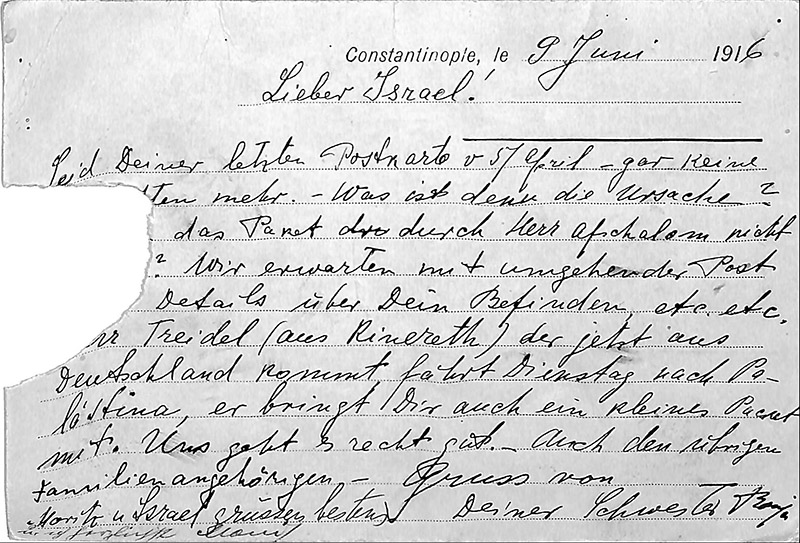 Constantinople, le 9 Juni 1916
Lieber Israel!
Seid Deiner letzten Postkarte v 5/ April – gar keine
ten mehr. – Was ist denn die Ursache?
das Paket durch Herr Afschalom nicht
? Wir erwarten mit umgehender Post
Details über Dein Befinden, etc. etc.
rr Treidel (aus Kinereth) der jetzt aus
Deutschland kommt, fährt Dienstag nach Pa-
lästina, er bringt Dir auch ein kleines Packet
mit. Uns geht es recht gut. – Auch den übrigen
Familienangehörigen – Gruss von
Moritz u Israel grüssen bestens Deiner Schwester